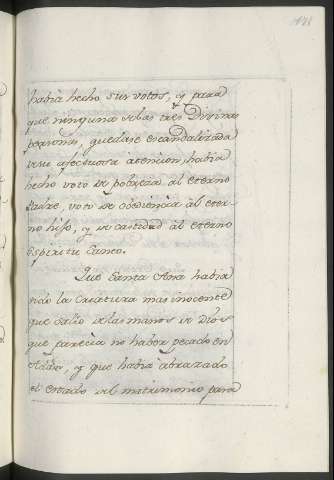 havia hecho sus votos, y para
que ninguna de las tres Divinas
personas, quedase escandalizada
de su afectuosa atencion, havia
hecho voto de pobreza al eterno
Padre, voto de obediencia al eter-
no hijo, y de castidad al eterno
Espiritu Santo.
Que Santa Ana havia
sido la Criatura mas inocente
que salio de las manos de Dios
que parecia no haber pecado en
Adan, y que habia abrazado
el estado del matrimonio para